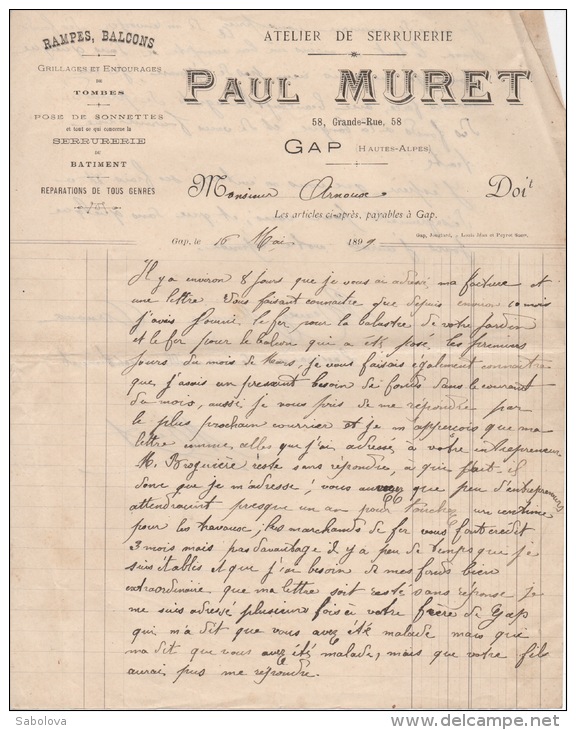 RAMPES, BALCONS
GRILLAGES ET ENTOURAGES
DE
TOMBES
POSE DE SONNETTES
et tout ce qui concerne la
SERRURERIE
DU
BATIMENT
RÉPARATIONS DE TOUS GENRES
ATELIER DE SERRURERIE
PAUL MURET
58, Grande-Rue, 58
GAP (HAUTES-ALPES)
Monsieur Arnoux Doit
Les articles ci-après, payables à Gap.
Gap, Jouglard, - Louis Jean et Peyrot Succr.
Gap, le 16 Mai 1899
Il y a environ 8 jours que je vous ai adressé, ma facture et
une lettre Vous faisant connaitre que depuis environ 10 mois
j'avais fourni, le fer pour la balustre de votre jardin
et le fer pour le balcon qui a été posé les premiers
jours du mois de Mars, je vous faisais également connaitre
que, j'avais un pressent besoin de fonds dans le courant
du mois, aussi je vous pris de me répondre par
le plus prochain courrier et je m'apperçois que ma
lettre comme celles que j'ai adressés à votre entrepreneur
M. Broguière reste sans répondre, à qui fait-il
donc que je m'adresse; vous que peu d'entrepreneurs
attendraient presque un an pour toucher un centime
pour les travaux; les marchands de fer vous font crédit
3 mois mais pas davantage il y a peu de temps que je
suis établis et que j'ai besoin de mes fonds bien
extraordinaire que ma lettre soit resté sans réponse je
me suis adressé plusieurs fois à votre frère de Gap
qui m'a dit que vous avez été malade mais que
ma dit que vous avez été malade, mais que votre fils
aurai pus me répondre.
Sabolova
www.delcampe.net